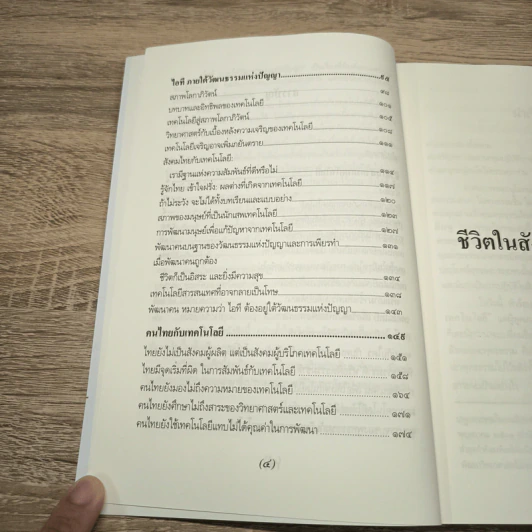 ไอที ภายใต้วัฒนธรรมแห่งปัญญา..........๙๕
สภาพโลกาภิวัตน์ ..........๙๘
บทบาทและอิทธิพลของเทคโนโลยี ..........๑๐๑
เทคโนโลยีสู่สภาพโลกาภิวัตน์ ..........๑๐๕
วิทยาศาสตร์กับเบื้องหลังความเจริญของเทคโนโลยี ..........๑๐๘
เทคโนโลยีเจริญอาจเพิ่มภยันตราย ..........๑๑๑
สังคมไทยกับเทคโนโลยี:
เรามีฐานแห่งความสัมพันธ์ที่ดีหรือไม่ ..........๑๑๔
รู้จักไทย เข้าใจฝรั่ง: ผลต่างที่เกิดจากเทคโนโลยี ..........๑๑๗
ถ้าไม่ระวัง จะไม่ได้ทั้งบทเรียนและแบบอย่าง ..........๑๒๐
สภาพของมนุษย์ที่เป็นนักเสพเทคโนโลยี ..........๑๒๓
การพัฒนามนุษย์เพื่อแก้ปัญหาจากเทคโนโลยี ..........๑๒๗
พัฒนาคนบนฐานของวัฒนธรรมแห่งปัญญาและการเพียรทำ ..........๑๓๑
เมื่อพัฒนาคนถูกต้อง
ชีวิตก็เป็นอิสระ และยิ่งมีความสุข ..........๑๓๔
เทคโนโลยีสารสนเทศที่อาจกลายเป็นโทษ ..........๑๓๘
พัฒนาคน หมายความว่า ไอที ต้องอยู่ใต้วัฒนธรรมแห่งปัญญา ..........๑๔๓
คนไทยกับเทคโนโลยี ..........๑๔๙
ไทยยังไม่เป็นสังคมผู้ผลิต แต่เป็นสังคมผู้บริโภคเทคโนโลยี ..........๑๕๑
ไทยมีจุดเริ่มที่ผิด ในการสัมพันธ์กับเทคโนโลยี ..........๑๕๘
คนไทยยังมองไม่ถึงความหมายของเทคโนโลยี ..........๑๖๔
คนไทยยังศึกษาไม่ถึงสาระของวิทยาศาสตร์และเทคโนโลยี ..........๑๗๑
คนไทยยังใช้เทคโนโลยีแทบไม่ได้คุณค่าในการพัฒนา ..........๑๗๔
(๔)
ชีวิตในสั